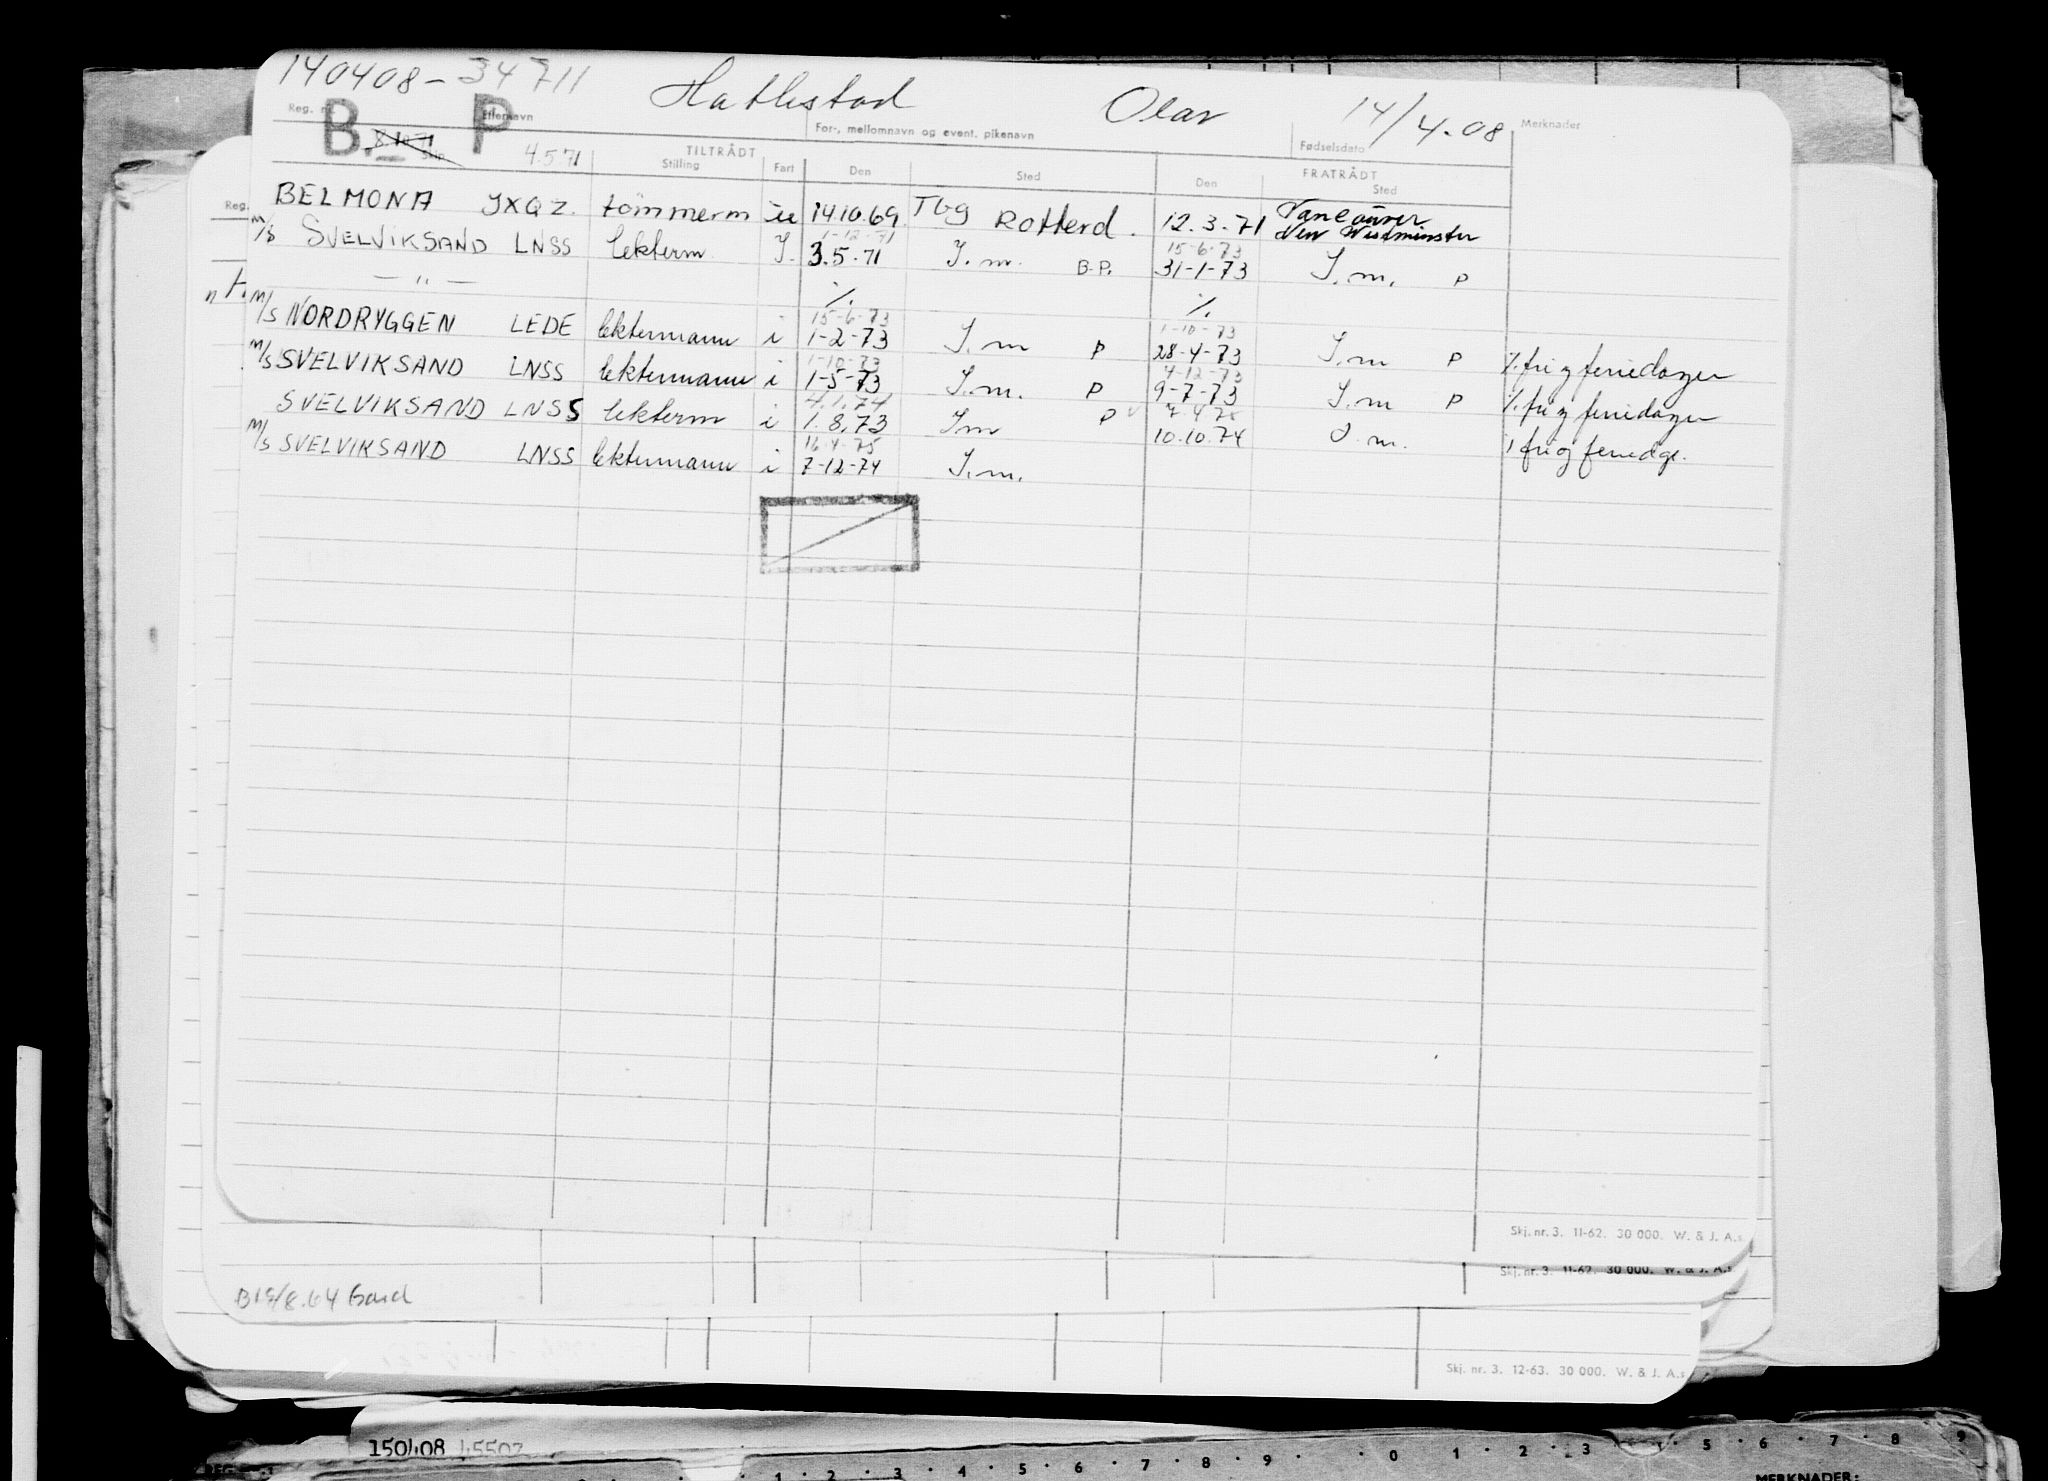 140408-34711 Hatlestad Olav 14/4-08
Reg. nr. Etternavn For-, mellomnavn og event. pikenavn Fødselsdato Merknader
B. P
8.10.71 4.5.71
Skip TILTRÅDT FRATRÅDT
Stilling Fart Den Sted Den Sted
BELMONA JXQZ. tömmerm u 14.10.69. Tbg Rotterd. 12.3.71 Vancouver
New Westminster
1-12-71 15-6-73
M/S SVELVIKSAND LNSS lekterm J. 3.5.71 J.m. B.P. 31-1-73 J.m. P
— " — %. %.
15-6-73 1-10-73
M/S NORDRYGGEN LEDE lektermann i 1-2-73 J.m P 28-4-73 J.m P %. fri og feriedager
1-10-73 4-12-73
M/S SVELVIKSAND LNSS lektermann i 1-5-73 J.m. P 9-7-73 J.m P %. fri og feriedager
4.1.74
SVELVIKSAND LNSS lekterm i 1.8.73 Jm P 10.10.74 J.m. fri og feriedge.
16.4.75
M/S SVELVIKSAND LNSS lektermann i 7-12-74 J.m.
Skj. nr. 3. 11-62. 30 000. W. & J. A.s
Skj. nr. 3. 11-62. 30 000. W. & J. A.s
Skj. nr. 3. 12-63. 30 000. W. & J. A.s
150408 45502
0 1 2 3 5 6 7 8 9
1 2 3 4 5 6 7 8 9
MERKNADER: